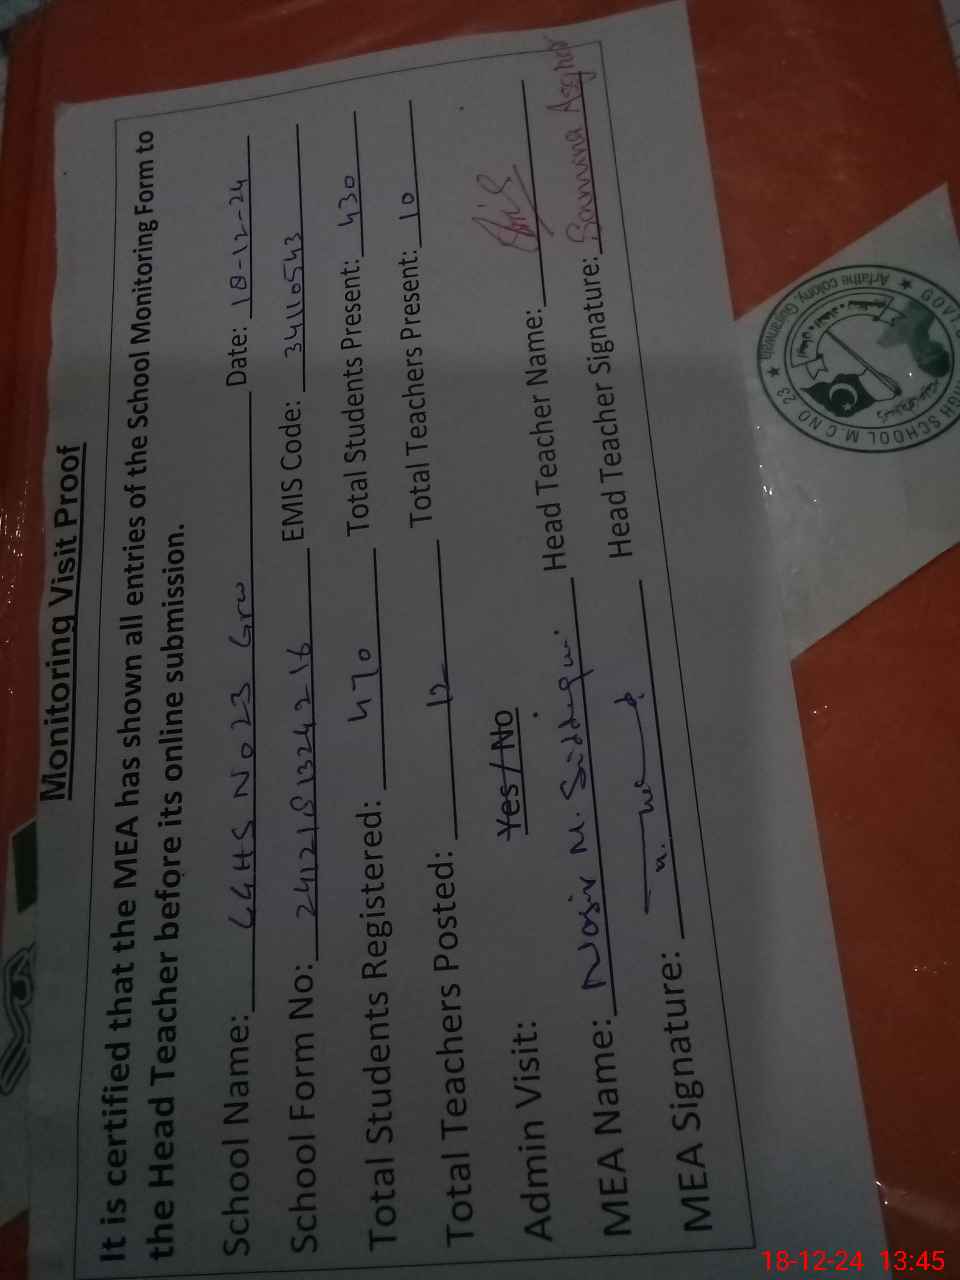 Monitoring Visit Proof
It is certified that the MEA has shown all entries of the School Monitoring Form to
the Head Teacher before its online submission.
School Name: GGHS No 23 Grw Date: 18-12-24
School Form No: EMIS Code: 34110543
Total Students Registered: 470 Total Students Present: 430
Total Teachers Posted: 12 Total Teachers Present: 10
Admin Visit: Yes / No
MEA Name: Nasir M. Siddiqui Head Teacher Name:
MEA Signature: Head Teacher Signature: Samina Asghar
HIGH SCHOOL M.C NO 23 ★ Arfathe colony, Gujranwala ★
18-12-24 13:45